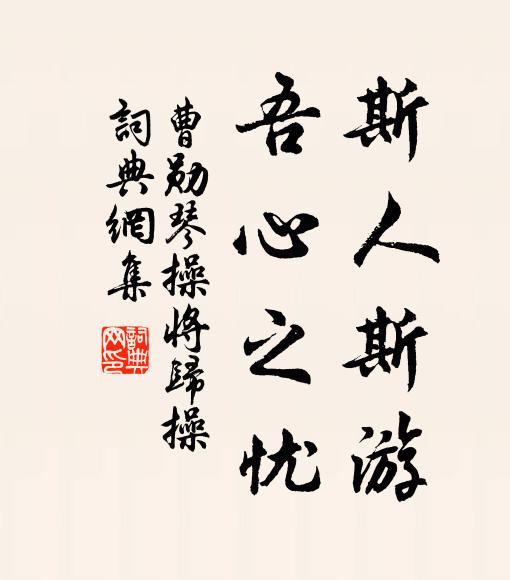 斯人斯游
吾心之忧
曹勋琴操将歸操
詞典網集
詞典網印